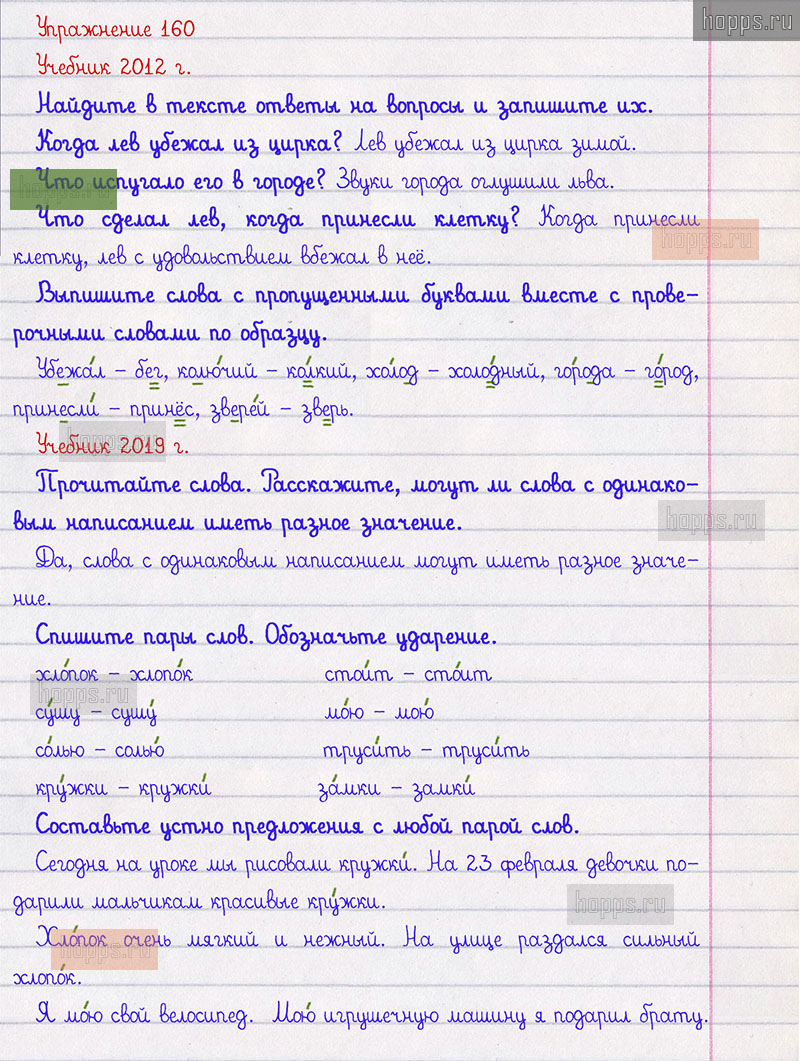 hopps.ru
Упражнение 160
Учебник 2012 г.
Найдите в тексте ответы на вопросы и запишите их.
Когда лев убежал из цирка? Лев убежал из цирка зимой.
Что испугало его в городе? Звуки города оглушили льва.
hopps.ru
Что сделал лев, когда принесли клетку? Когда принесли
hopps.ru
клетку, лев с удовольствием вбежал в неё.
Выпишите слова с пропущенными буквами вместе с прове-
рочными словами по образцу.
Убежа́л – бег, колю́чий – ко́лкий, хо́лод – холо́дный, го́рода – го́род,
принесли́ – принёс, звере́й – зверь.
Учебник 2019 г.
hopps.ru
Прочитайте слова. Расскажите, могут ли слова с одинако-
вым написанием иметь разное значение.
hopps.ru
Да, слова с одинаковым написанием могут иметь разное значе-
ние.
Спишите пары слов. Обозначьте ударение.
хло́пок – хлопо́к стои́т – сто́ит
hopps.ru
су́шу – сушу́ мо́ю – мою́
со́лью – солью́ труси́ть – труси́ть
кру́жки – кружки́ за́мки – замки́
Составьте устно предложения с любой парой слов.
Сегодня на уроке мы рисовали кружки́. На 23 февраля девочки по-
дарили мальчикам красивые кру́жки.
hopps.ru
Хло́пок очень мягкий и нежный. На улице раздался сильный
hopps.ru
хлопо́к.
Я мо́ю свой велосипед. Мою́ игрушечную машину я подарил брату.